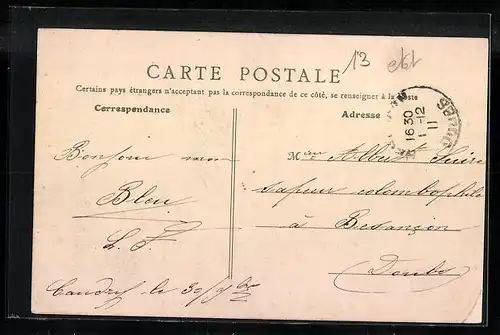 13
CARTE POSTALE
Certains pays étrangers n'acceptant pas la correspondance de ce côté, se renseigner à la Poste
Correspondance
Adresse
16 30
1 -12
11
Bonjour mon
Bleu
L. F.
le 30/
M Albert
sapeur colombophile
à Besançon
Doubs